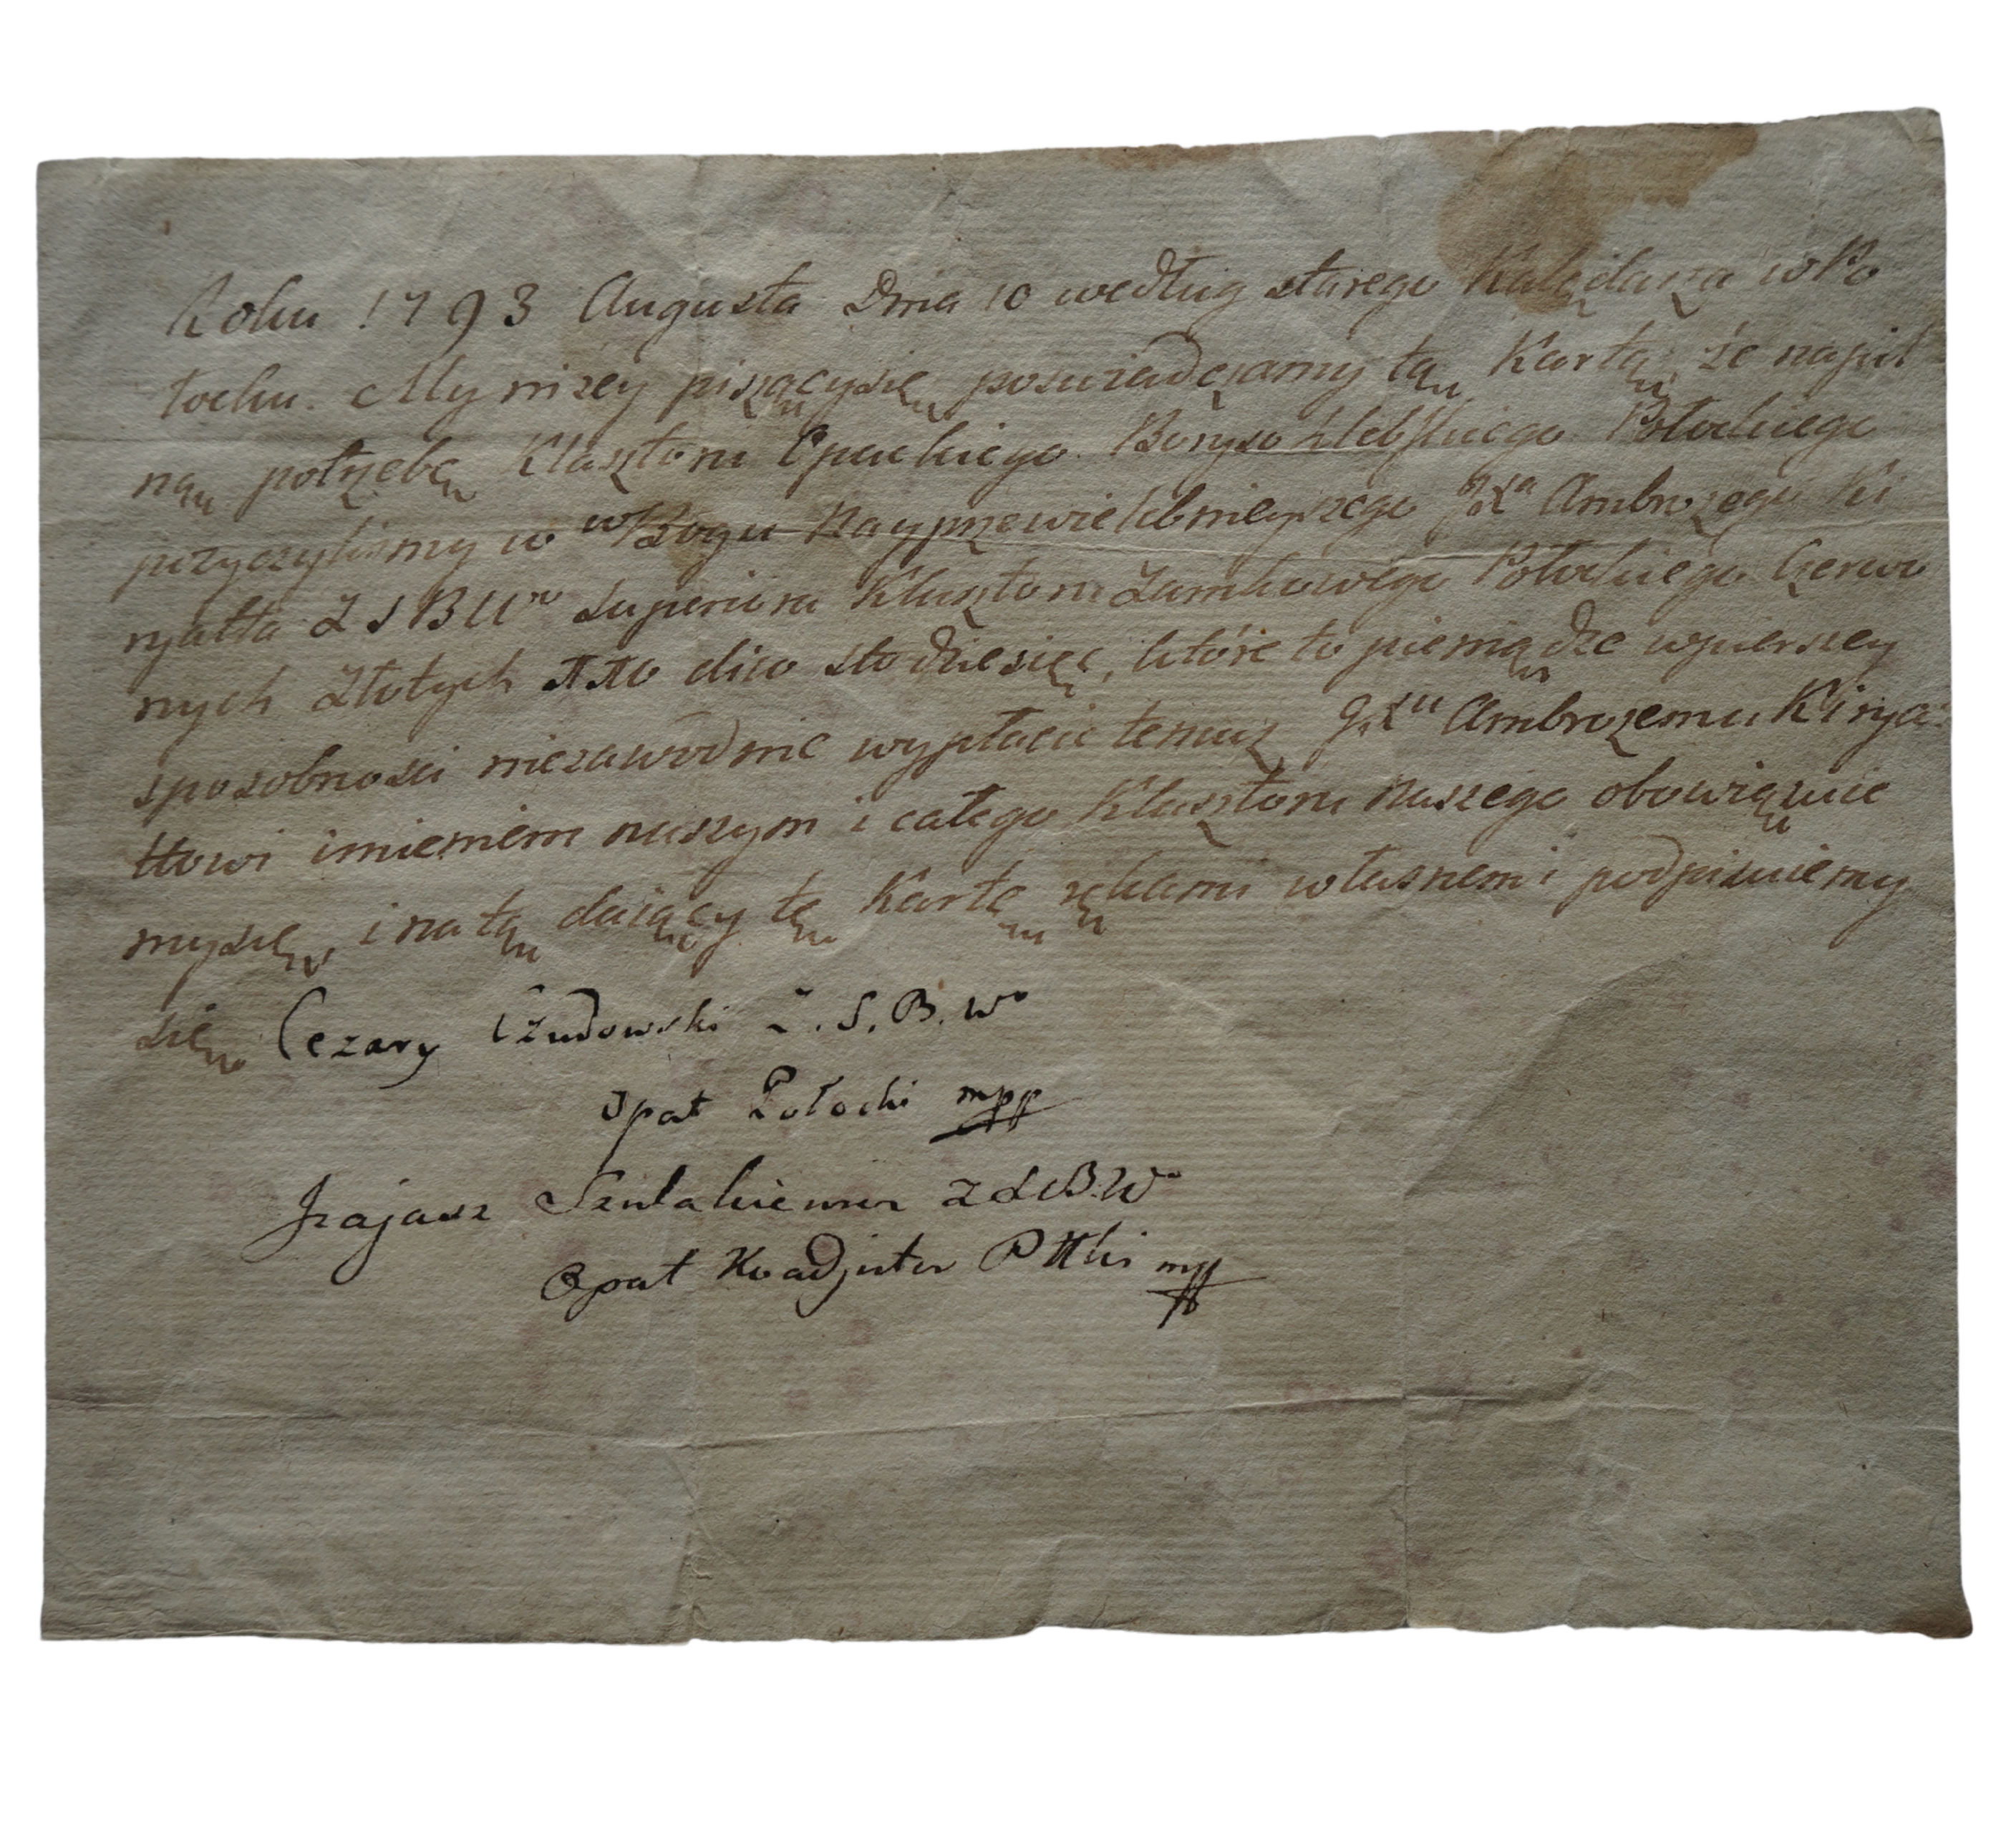 Roku 1793 Augusta Dnia 10 według starego Kalędarza w Po
łocku. My niżey piszącysię poswiadczamy tą Kartą, że napil
ną potrzebę Klasztoru Opackiego Borysohlebskiego Połockiego
pożyczylismy w wBogu Nayprzewielebnieyszego Jxa Ambrożego Ki
ryatta Z S B Wo Superiora Klasztoru Zamkowego Połockiego Czerwo
nych Złotych dwo stodziesięć, które to pieniądze wpierszey
sposobnosci niezawodnie wypłacic temuz Jxu Ambrożemu Kirya
ttowi imieniem naszym i całego Klasztoru naszego obowiązuie
mysię, i na tą daiący tę Kartę rękami własnemi podpisuiemy
się Cezary Czudowski Z. S. B. Wo
Opat Połocki mpp
Izajasz Szulakiewicz Z S B. Wo
Opat Koadjutor Pttki mpp